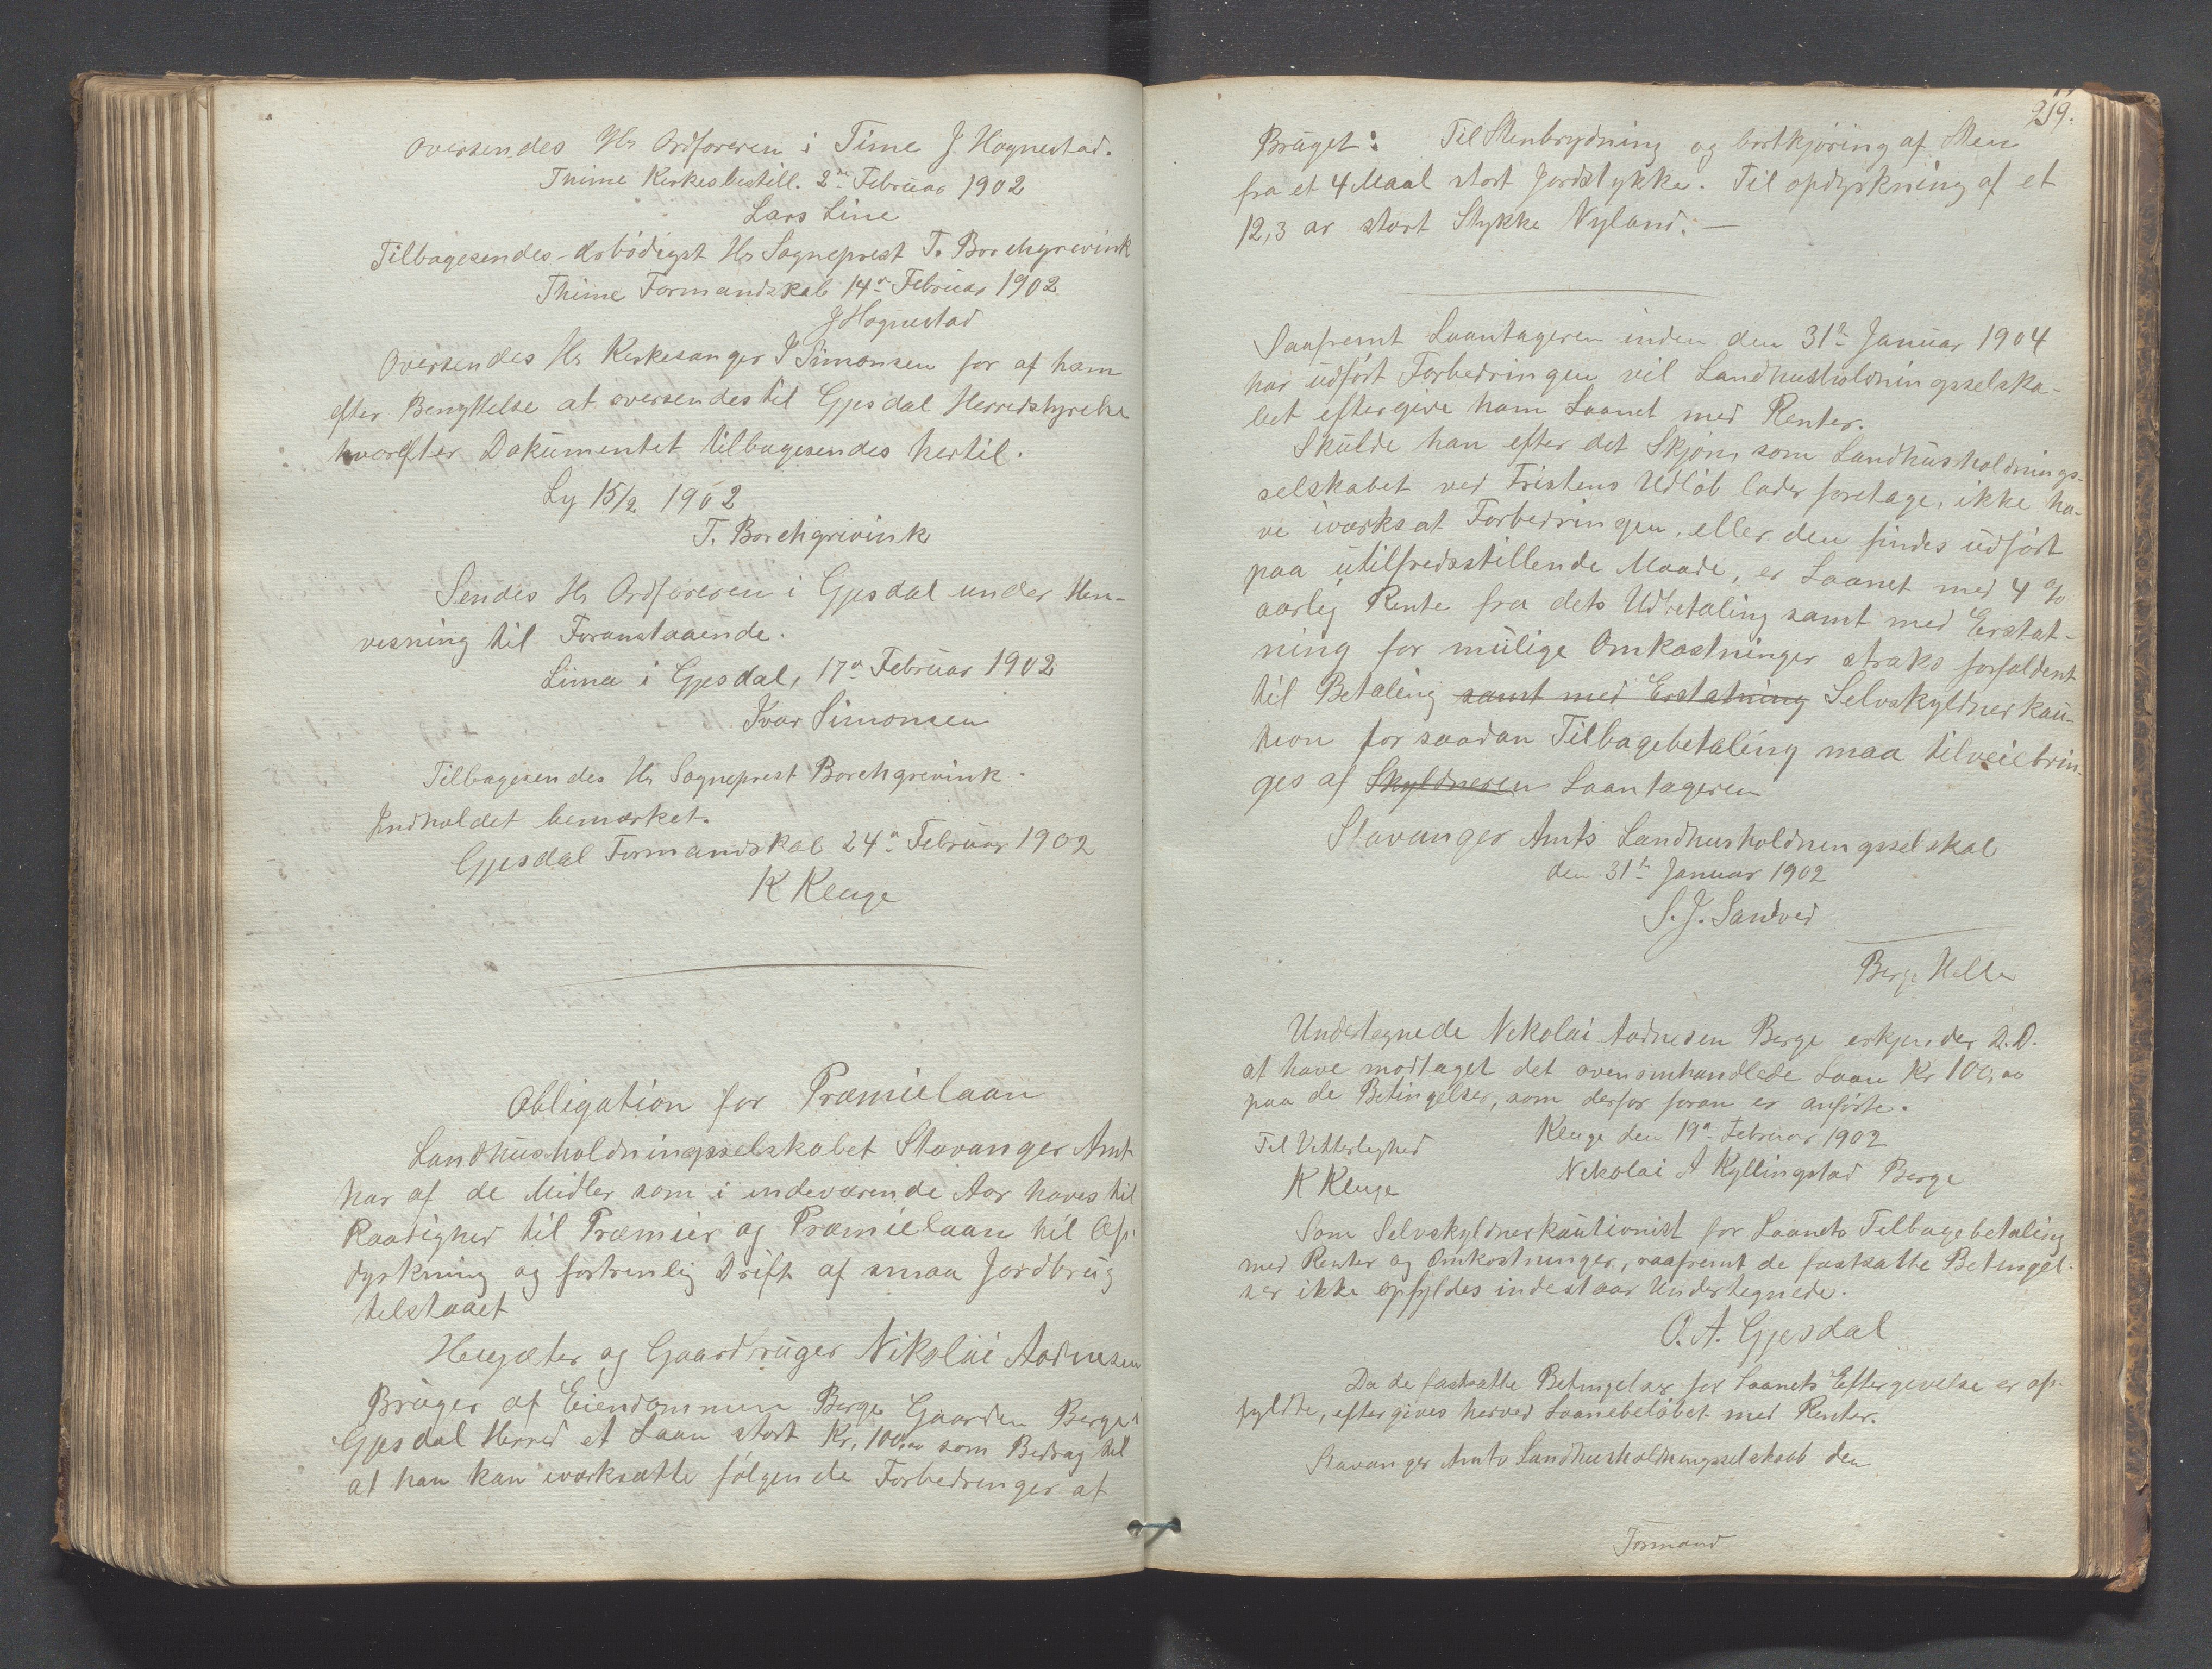 Oversendes Hr Ordføreren i Time J Hognestad.
Thime Kirkesbestill. 2den Februar 1902
Lars Line
Tilbagesendes ærbødigst Hr Sogneprest T. Borchgrevink
Thime Formandskab 14de Februar 1902
J Hognestad
Oversendes Hr Kirkesanger I Simonsen for af ham
efter Benyttelse at oversendes til Gjesdal Herredstyrelse
hvorefter Dokumentet tilbagesendes hertil.
Ly 15/2 1902
T. Borchgrivink
Sendes Hr Ordføreren i Gjesdal under Hen-
visning til Foranstaaende.
Lima i Gjesdal, 17de Februar 1902
Ivar Simonsen
Tilbagesendes Hr Sogneprest Borchgrevink.
Indholdet bemærket.
Gjesdal Formandskab 24de Februar 1902
K Kluge
Obligation for Præmielaan
Landhusholdningsselskabet Stavanger Amt
har af de Midler som i indeværende Aar haves til
Raadighed til Præmier og Præmielaan til Op-
dyrkning og fortrinlig Drift af smaa Jordbrug
tilstaaet
og Gaardbruger Nikolai Aadnesen
Bruger af Eiendommen Berge Gaarden Berge i
Gjesdal Herred et Laan stort Kr. 100,00 som Bidrag til
at han kan iværksætte følgende Forbedringer af
219.
Bruget: Til Stenbrydning og bortkjøring af Sten
fra et 4 Maal stort Jordstykke. Til opdyrkning af et
12,3 ar stort Stykke Nyland. —
Saafremt Laantageren inden den 31te Januar 1904
har udført Forbedringen vil Landhusholdningsselska-
bet eftergive ham Laanet med Renter.
Skulde han efter det Skjøn, som Landhusholdnings-
selskabet ved Fristens Udløb lader foretage, ikke ha-
ve iværksat Forbedringen, eller den findes udført
paa utilfredsstillende Maade, er Laanet med 4 %
aarlig Rente fra dets Udbetaling samt med Erstat-
ning for mulige Omkostninger straks forfaldent
til Betaling samt med Erstatning Selvskyldner kau-
tion for saadan Tilbagebetaling maa tilveiebrin-
ges af Skyldneren Laantageren
Stavanger Amts Landhusholdningsselskab
den 31te Januar 1902
S. J. Sandved
Berge Helle
Undertegnede Nikolai Aadnesen Berge erkjender D. D.
at have modtaget det ovenomhandlede Laan Kr 100,00
paa de Betingelser, som derfor foran er anførte.
Til Vitterlighed
Kluge den 19de Februar 1902
K Kluge
Nikolai A Kyllingstad Berge
Som Selvskyldnerkautionist for Laanets Tilbagebetaling
med Renter og Omkostninger, saafremt de fastsatte Betingel-
ser ikke opfyldes indestaar Undertegnede.
O. A. Gjesdal
Da de fastsatte Betingelser for Laanets Eftergivelse er op-
fyldte, eftergives herved Laanebeløbet med Renter.
Stavanger Amts Landhusholdningsselskab den
Formand